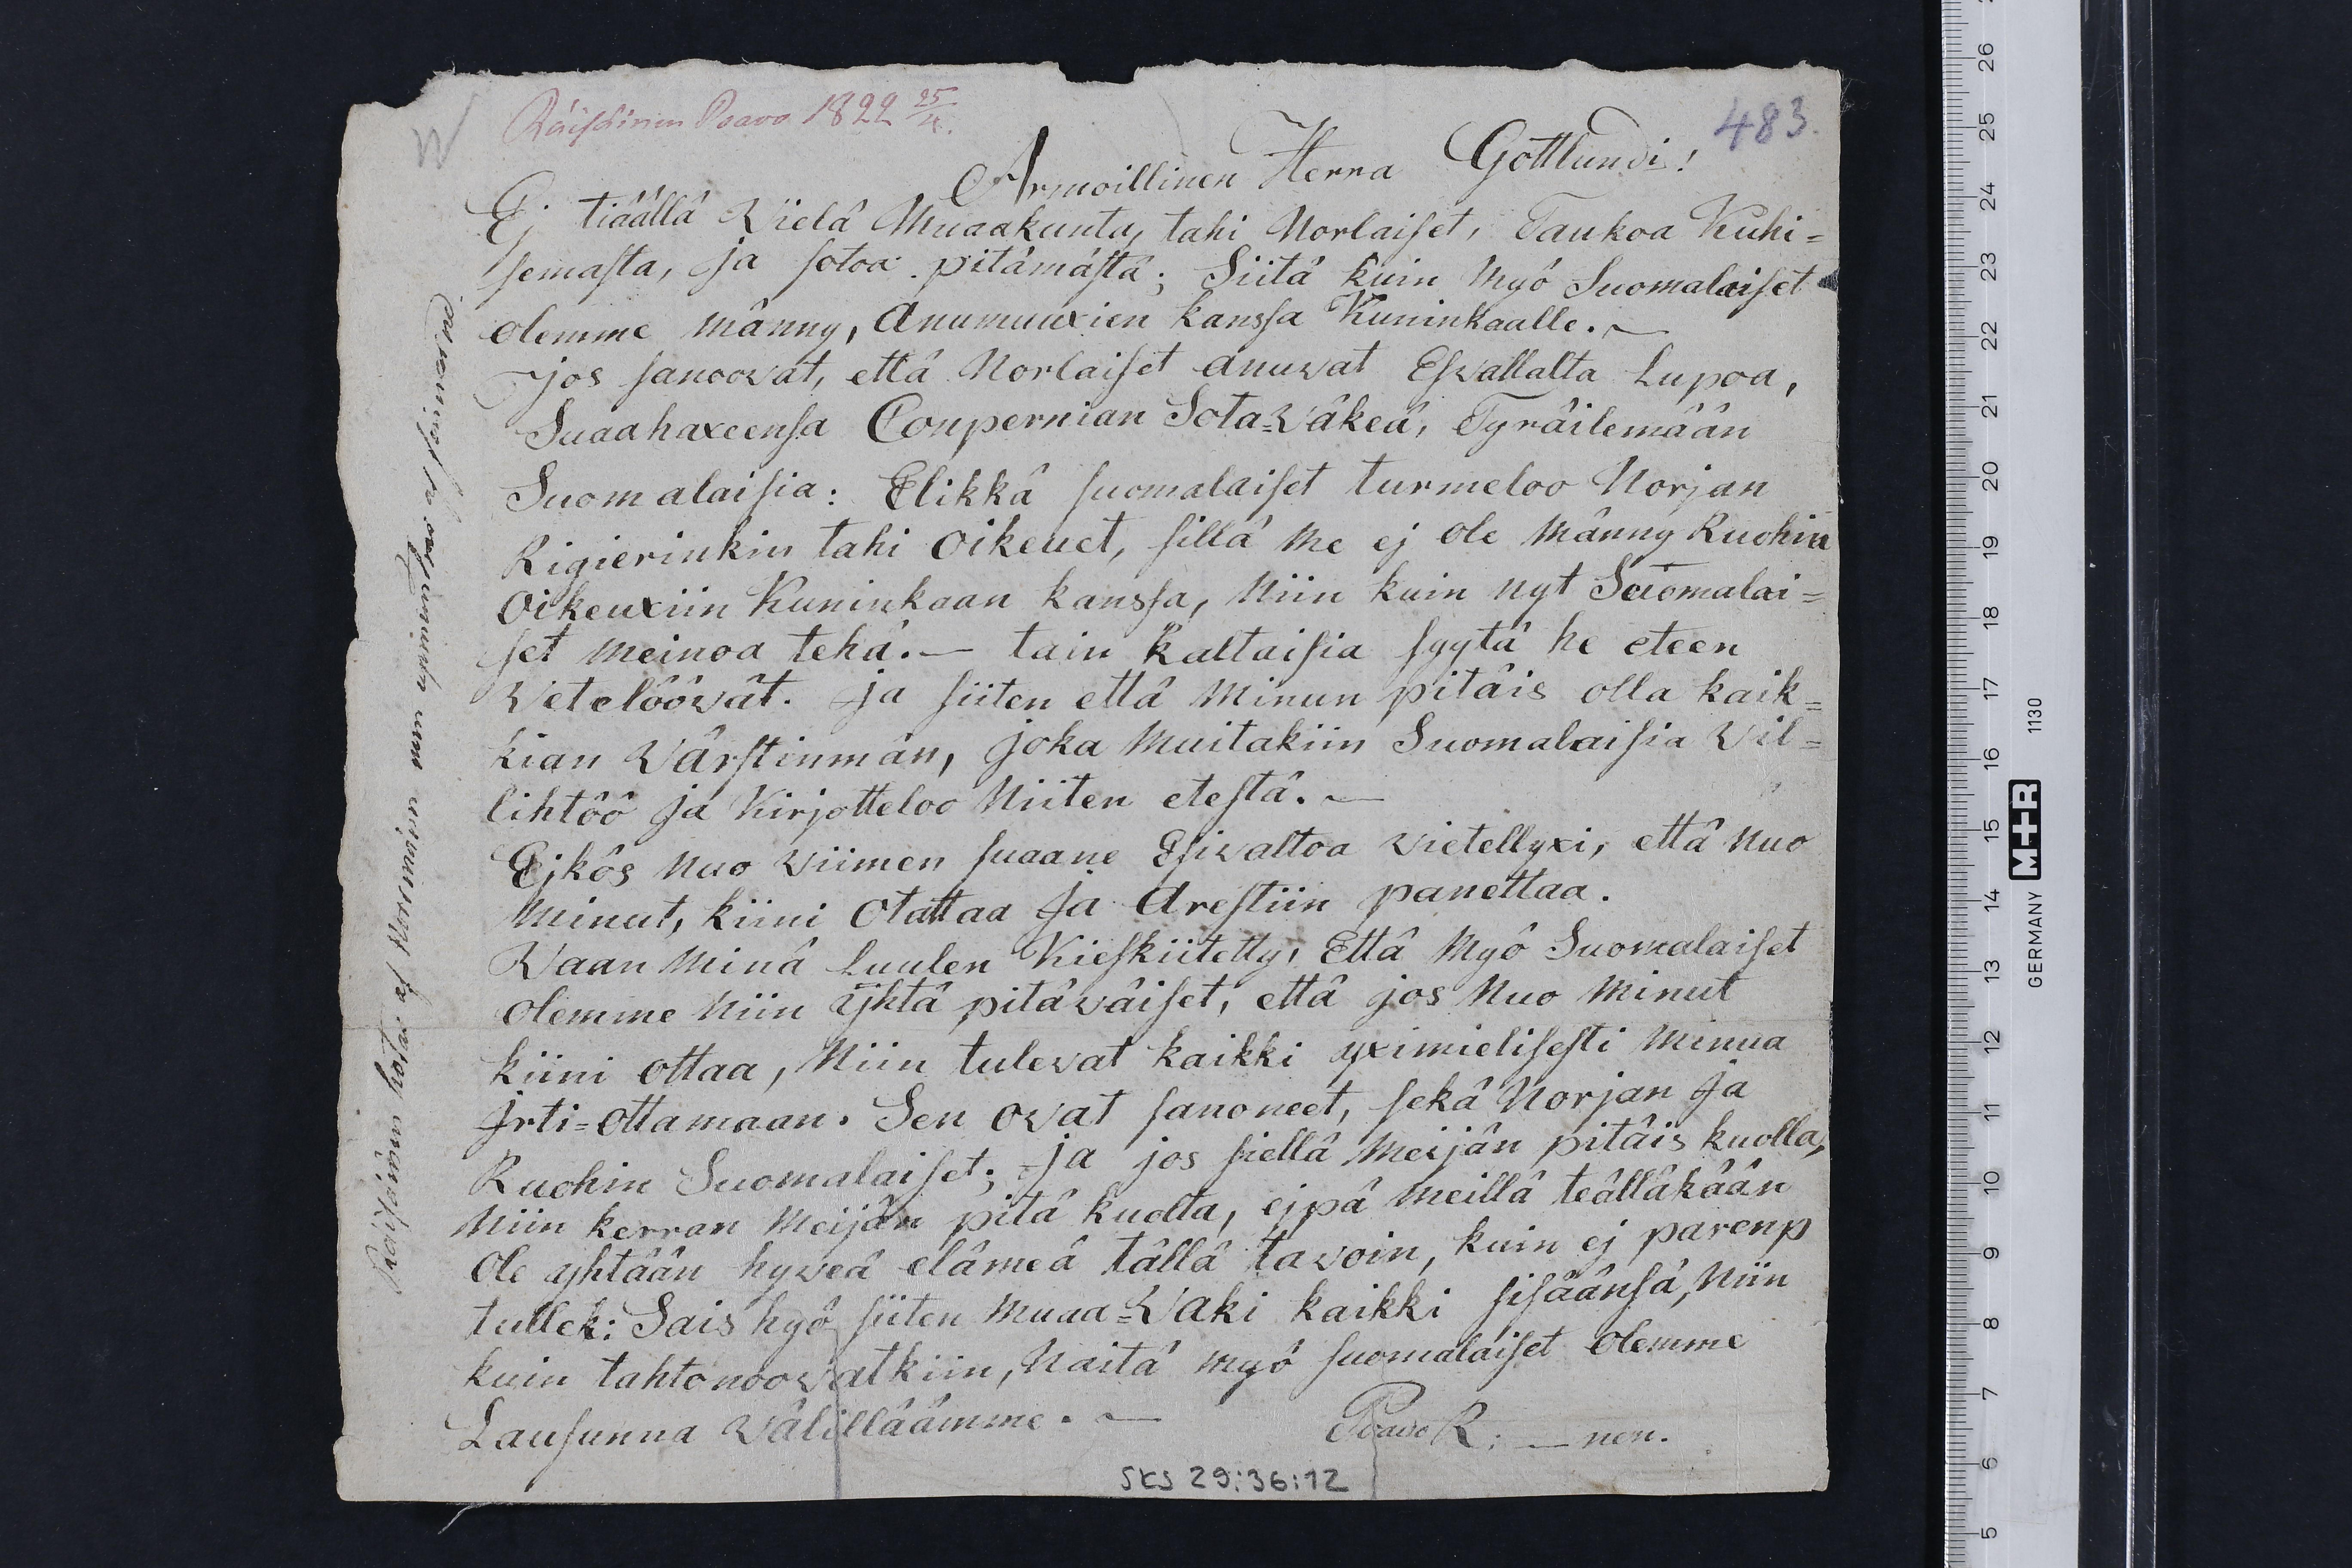 Räisäinen Paavo 1822 25/4.
483.
Armoillinen Herra Gottlundi!
Ej tiäällä Vielä Muaakunta, tahi Norlaiset, Taukoa Kuhi=
semasta, ja sotoa pitämästä; Siitä kuin Myö Suomalaiset
olemme männy, Anumuuxien kanssa Kuninkaalle. —
jos sanoovat, että Norlaiset anuvat Esvallalta Lupoa,
Suaahaxeensa Coupernian Sota=Väkeä, Tyräilemään
Suomalaisia: Elikkä suomalaiset turmeloo Norjan
Rigierinkin tahi oikeuet, sillä me ej ole männy Ruohin
Oikeuxiin Kuninkaan kanssa, Niin kuin nyt Suomalai=
set meinoa tehä. — tain kaltaisia syytä he eteen
Vetelöövät. ja siiten että minun pitäis olla kaik=
kian Värstinmän, joka Muitakiin Suomalaisia Vil=
lihtöö ja Kirjotteloo Niiten etestä. —
Ejkös nuo viimen suaane Esivaltoa vietellyxi, että nuo
Minut, kiini otattaa ja Arestiin panettaa.
Vaan Minä Luulen Kieskiitetty, Että Myö Suomalaiset
olemme Niin Yhtä pitäväiset, että jos Nuo Minut
kiini ottaa, Niin tulevat kaikki yximielisesti Minua
jrti=ottamaan. Sen ovat sanoneet, sekä Norjan ja
Ruohin Suomalaiset; ja jos siellä Meijän pitäis kuolla,
Niin kerran Meijän pitä kuolla, ejpä Meillä teälläkään
Ole yhtään hyveä elämeä tällä tavoin, kuin ej parenp
tullek: Sais hyö siiten Muaa=Väki kaikki sisäänsä, Niin
kuin tahtonoovatkiin, Naitä myö suomalaiset olemme
Lausunna Välillläämme. —
Poavo R: — nen.
SKS 29:36:12